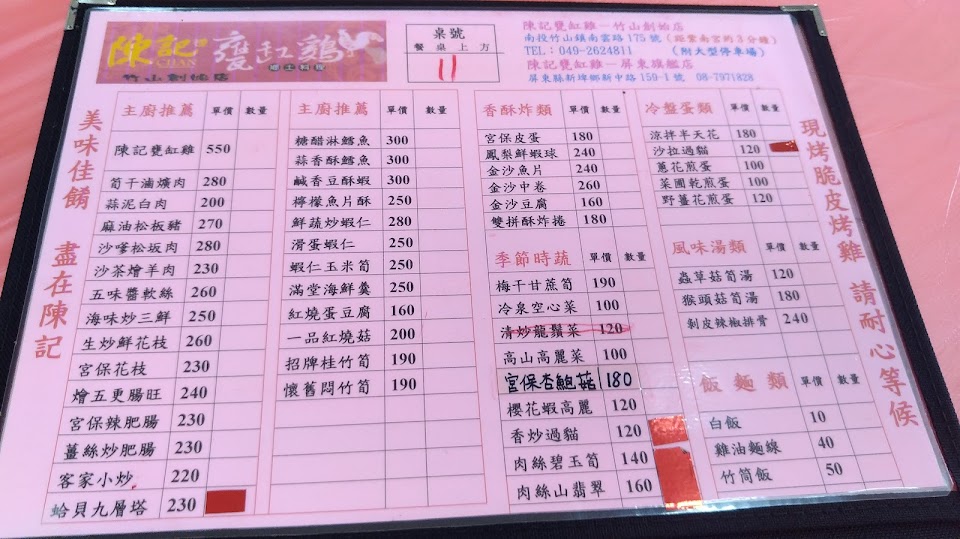 陳記 CHAN 甕缸雞
鄉土料理
竹山創始店
桌號
餐桌上方
11
陳記甕缸雞—竹山創始店
南投竹山鎮南雲路175號(距紫南宮約3分鐘)
TEL：049-2624811 (附大型停車場)
陳記甕缸雞—屏東旗艦店
屏東縣新埤鄉新中路159-1號 08-7971828
美味佳餚 盡在陳記
主廚推薦 單價 數量
陳記甕缸雞 550
筍干滷爌肉 280
蒜泥白肉 200
麻油松板豬 270
沙嗲松坂肉 280
沙茶燴羊肉 230
五味醬軟絲 260
海味炒三鮮 250
生炒鮮花枝 260
宮保花枝 230
燴五更腸旺 240
宮保辣肥腸 230
薑絲炒肥腸 230
客家小炒 220
蛤貝九層塔 230
主廚推薦 單價 數量
糖醋淋鱈魚 300
蒜香酥鱈魚 300
鹹香豆酥蝦 300
檸檬魚片酥 250
鮮蔬炒蝦仁 280
滑蛋蝦仁 250
蝦仁玉米筍 250
滿堂海鮮羹 250
紅燒蛋豆腐 160
一品紅燒菇 200
招牌桂竹筍 190
懷舊悶竹筍 190
香酥炸類 單價 數量
宮保皮蛋 180
鳳梨鮮蝦球 240
金沙魚片 240
金沙中卷 260
金沙豆腐 160
雙拼酥炸捲 180
季節時蔬 單價 數量
梅干甘蔗筍 190
冷泉空心菜 100
清炒龍鬚菜 120
高山高麗菜 100
宮保杏鮑菇 180
櫻花蝦高麗 120
香炒過貓 120
肉絲碧玉筍 140
肉絲山翡翠 160
冷盤蛋類 單價 數量
涼拌半天花 180
沙拉過貓 120
蔥花煎蛋 100
菜圃乾煎蛋 100
野薑花煎蛋 120
風味湯類 單價 數量
蟲草菇筍湯 120
猴頭菇筍湯 180
剝皮辣椒排骨 240
飯麵類 單價 數量
白飯 10
雞油麵線 40
竹筒飯 50
現烤脆皮烤雞 請耐心等候